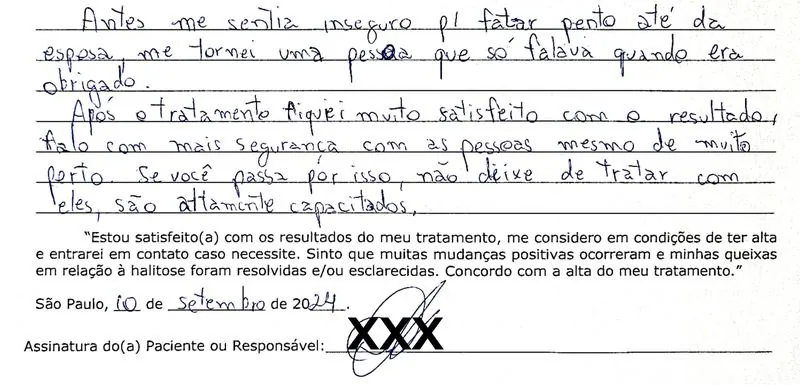 Antes me sentia inseguro p/ falar perto até da
esposa, me tornei uma pessoa que só falava quando era
obrigado.
Após o tratamento fiquei muito satisfeito com o resultado,
falo com mais segurança com as pessoas mesmo de muito
perto. Se você passa por isso, não deixe de tratar com
eles, são altamente capacitados.
"Estou satisfeito(a) com os resultados do meu tratamento, me considero em condições de ter alta
e entrarei em contato caso necessite. Sinto que muitas mudanças positivas ocorreram e minhas queixas
em relação à halitose foram resolvidas e/ou esclarecidas. Concordo com a alta do meu tratamento."
São Paulo, 10 de setembro de 2024.
Assinatura do(a) Paciente ou Responsável: XXX